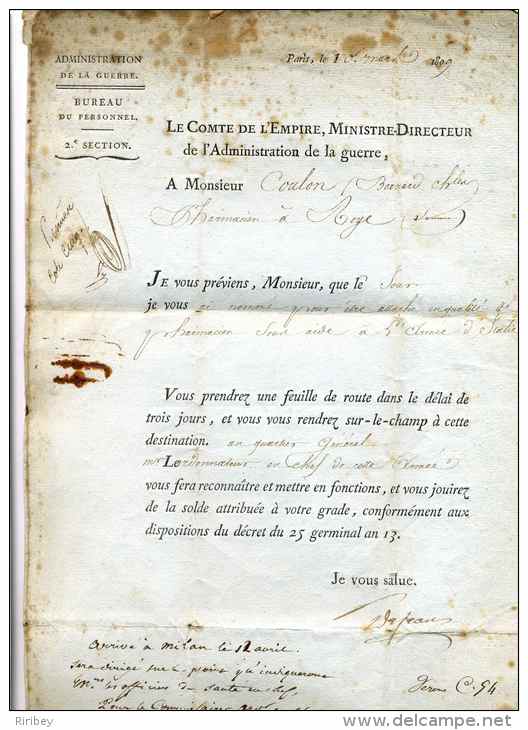 ADMINISTRATION
DE LA GUERRE.
BUREAU
DU PERSONNEL.
2.e SECTION.
Paris, le 10 mars 1809
LE COMTE DE L'EMPIRE, MINISTRE-DIRECTEUR
de l'Administration de la guerre,
A Monsieur Coulon (Bernard
Pharmacien à Roye (Somme)
JE vous préviens, Monsieur, que le Sour
je vous ai nommé pour être attaché en qualité de
pharmacien Sous aide à l'Armée d'Italie
Vous prendrez une feuille de route dans le délai de
trois jours, et vous vous rendrez sur-le-champ à cette
destination. au quartier Général
Mr L'ordonnateur en chef de cette Armée
vous fera reconnaître et mettre en fonctions, et vous jouirez
de la solde attribuée à votre grade, conformément aux
dispositions du décret du 25 germinal an 13.
Je vous salue.
Dejean
arrivé à milan le 12 avril.
sera dirigé sur le point qu'indiqueront
MM. les officiers de santé en chef
Pour le Commissaire
C. 54
Riribey
delcampe.net